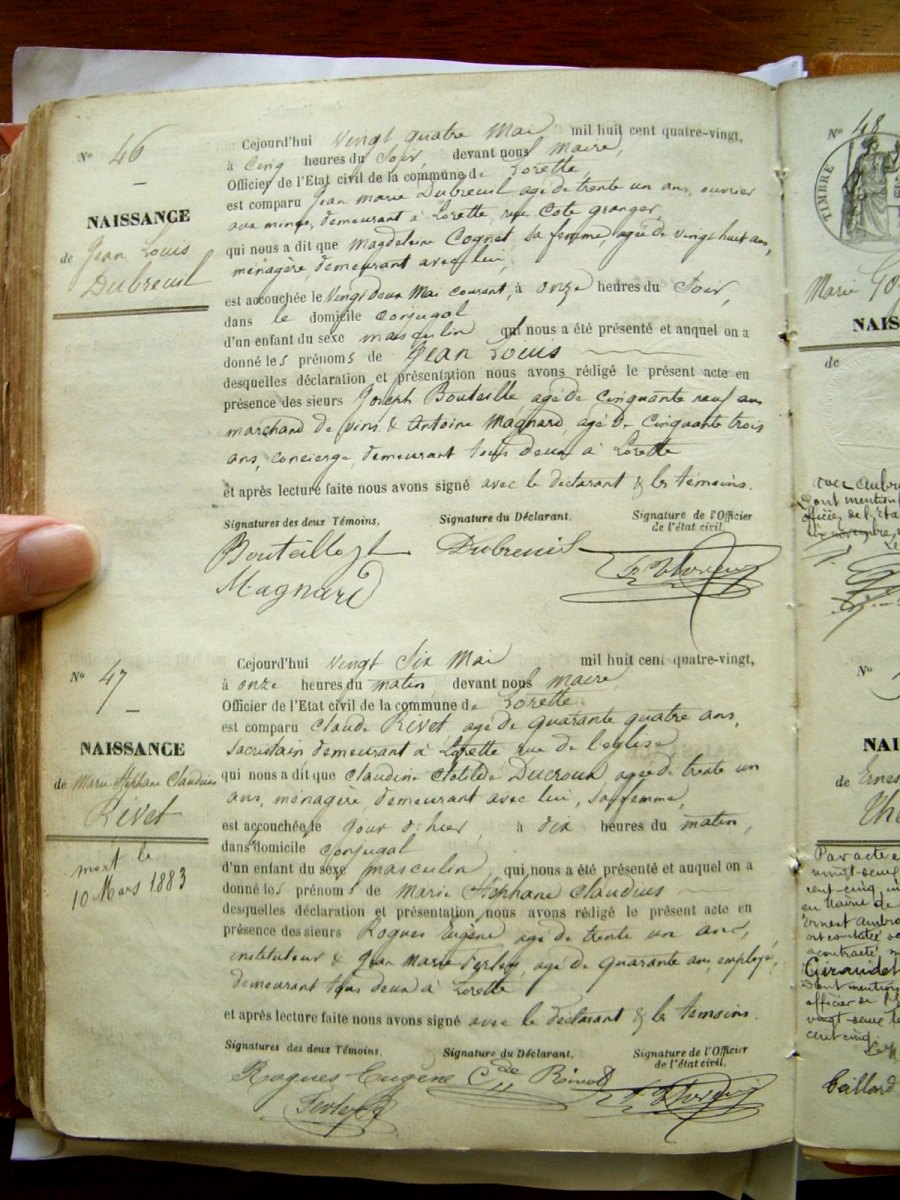 Nº 46
NAISSANCE
de Jean Louis
Dubreuil
Cejourd'hui vingt quatre Mai mil huit cent quatre-vingt,
à cinq heures du soir, devant nous maire,
Officier de l'Etat civil de la commune de Lorette,
est comparu Jean Marie Dubreuil agé de trente un ans, ouvrier
aux mines, demeurant à Lorette, rue Cote Granger,
qui nous a dit que Magdeleine Cognet, sa femme, agée de vingt huit ans,
ménagère, demeurant avec lui,
est accouchée le vingt deux Mai courant, à onze heures du soir,
dans le domicile conjugal
d'un enfant du sexe masculin qui nous a été présenté et auquel on a
donné les prénoms de Jean Louis
desquelles déclaration et présentation nous avons rédigé le présent acte en
présence des sieurs Joseph Bouteille agé de cinquante neuf ans
marchand de vins & Antoine Magnard, agé de cinquante trois
ans, concierge, demeurant tous deux à Lorette
et après lecture faite nous avons signé avec le déclarant & les témoins.
Signatures des deux Témoins,
Signature du Déclarant.
Signature de l'Officier
de l'état civil,
Bouteille
Dubreuil
Magnard
Nº 47
NAISSANCE
de Marie Stéphane Claudius
Rivet
mort le
10 Mars 1883
Cejourd'hui vingt six Mai mil huit cent quatre-vingt,
à onze heures du matin, devant nous maire,
Officier de l'Etat civil de la commune de Lorette
est comparu Claude Rivet agé de quarante quatre ans,
sacristain demeurant à Lorette rue de l'église
qui nous a dit que Claudine Clotilde Ducroux agée de trente un
ans, ménagère demeurant avec lui, sa femme,
est accouchée le jour d'hier, à dix heures du matin,
dans domicile conjugal
d'un enfant du sexe masculin qui nous a été présenté et auquel on a
donné les prénoms de Marie Stéphane Claudius
desquelles déclaration et présentation nous avons rédigé le présent acte en
présence des sieurs Rogues Eugène agé de trente un ans,
instituteur & Jean Marie agé de quarante ans, employé,
demeurant tous deux à Lorette
et après lecture faite nous avons signé avec le déclarant & les témoins.
Signatures des deux Témoins,
Signature du Déclarant.
Signature de l'Officier
de l'état civil,
Rogues Eugène
Nº 48
TIMBRE
Marie
NAIS
de
dont mention
officier de l'éta
Nº
NAI
de Ernes
Par acte e
vingt deux
cent cinq
en Mairie de
Ernest Ambro
a contracté m
Giraudet
Dont mention
officier de l'é
vingt deux
cent cinq.
Gaillard